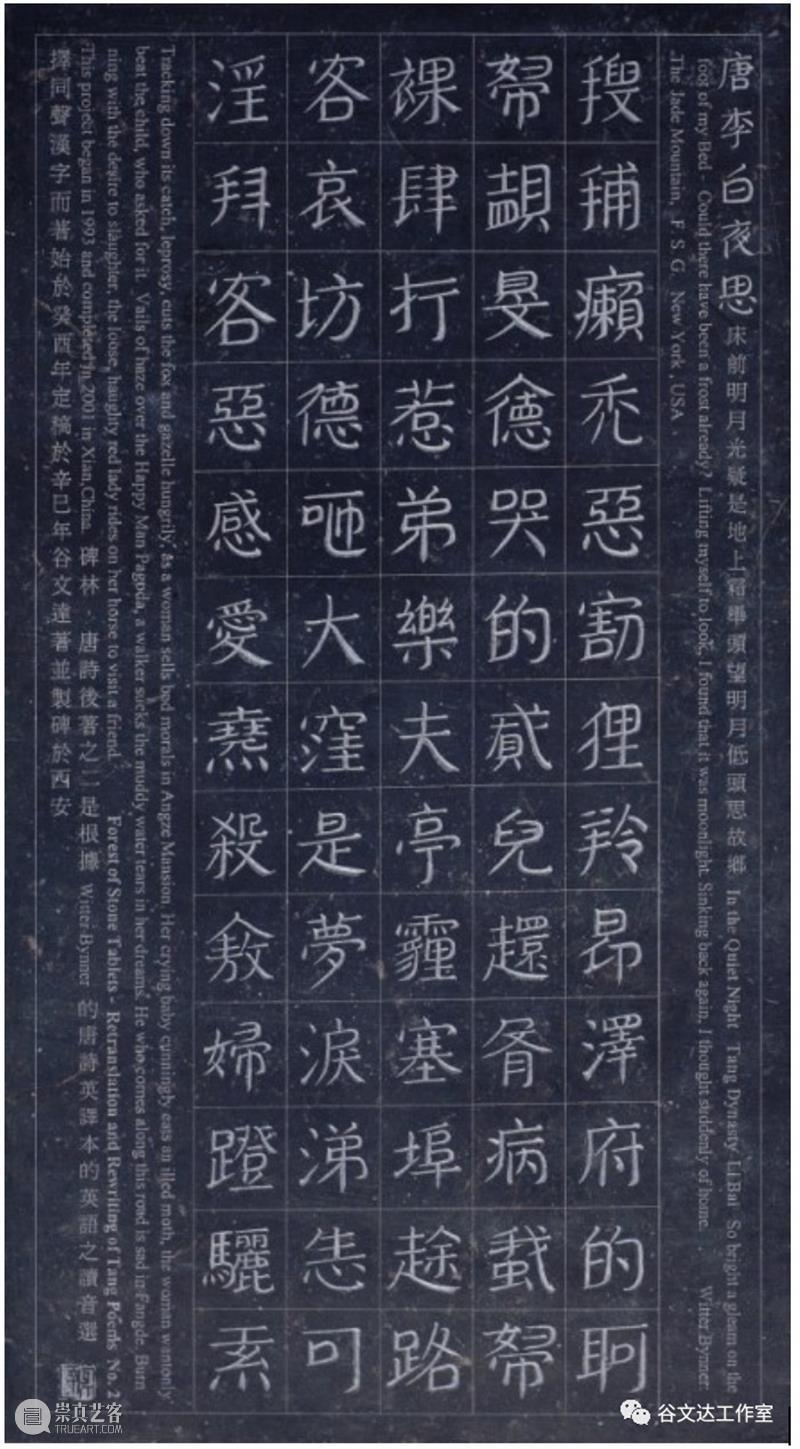 唐李白夜思 床前明月光疑是地上霜舉頭望明月低頭思故鄉 In the Quiet Night Tang Dynasty Li Bai So bright a gleam on the
foot of my Bed - Could there have been a frost already? Lifting myself to look, I found that it was moonlight. Sinking back again, I thought suddenly of home. Witter Bynner
The Jade Mountain, F. S. G. New York, USA.
癩禿惡狸羚昂澤府的
旻哭的貳兒病
裸肆行惹弟樂夫亭霾塞埠路
客哀坊德咂大窪是夢淚涕可
淫拜客惡感愛殺婦蹬驪
Tracking down its catch, leprosy, cuts the fox and gazelle hungrily, as a woman sells bad morals in Angze Mansion. Her crying baby cunningly eats an illed moth, the woman wantonly
beat the child, who asked for it. Vails of haze over the Happy Man Pagoda, a walker sucks the muddy water tears in her dreams. He who comes along this road is sad in Fangde. Burn
ning with the desire to slaughter, the loose, haughty red lady rides on her horse to visit a friend. Forest of Stone Tablets - Retranslation and Rewriting of Tang Poems No. 2
This project began in 1993 and completed in 2001 in Xian,China 碑林 - 唐詩後著之二是根據 Witter Bynner 的唐詩英譯本的英語之讀音選
擇同聲漢字而著始於癸酉年定稿於辛巳年谷文達著並製碑於西安
崇真艺客
TRUEART.COM
谷文达工作室